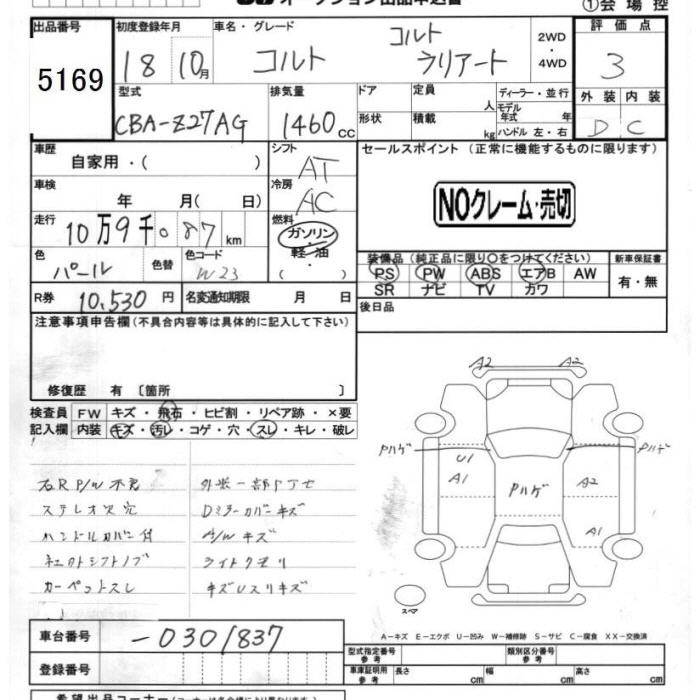 オークション出品申込書
①会場控
出品番号 初度登録年月 車名・グレード 2WD・4WD 評価点
5169 18 10月 コルト コルト ラリアート 3
外装 内装
D C
型式 排気量 ドア 定員 人 ディーラー・並行
CBA-Z27AG 1460cc 形状 積載 kg モデル年式 年式 ハンドル 左・右
車歴 自家用・( ) シフト AT
セールスポイント (正常に機能するものに限ります)
NOクレーム・売切
車検 年 月( 日) 冷房 AC
走行 10万9千087km 燃料 ガソリン・軽油・
色 パール 色替 色コード W23
装備品(純正品に限り○をつけてください) 新車保証書
PS PW ABS エアB AW 有・無
SR ナビ TV カワ
R券 10,530円 名変通知期限 月 日
後日品
注意事項申告欄(不具合内容等は具体的に記入して下さい)
修復歴 有〔箇所 〕
検査員 FW キズ・飛石・ヒビ割・リペア跡・×要
記入欄 内装 キズ・汚レ・コゲ・穴・スレ・キレ・破レ
A2 A2
Pハゲ Pハゲ
U1
A1 Pハゲ A2
A1
スペア
右R P/W不良 外装一部
ステレオ欠 穴 Dミラーカバーキズ
ハンドルカバー付 A/Wキズ
シフトノブ ライトクモリ
カーペットスレ キズUスリキズ
A-キズ E-エクボ U-凹み W-補修跡 S-サビ C-腐食 XX-交換済
車台番号 -0301837
型式指定番号 参考 類別区分番号 参考
登録番号 車庫証明用 参考 長さ cm 幅 cm 高さ cm
希望出品コーナー